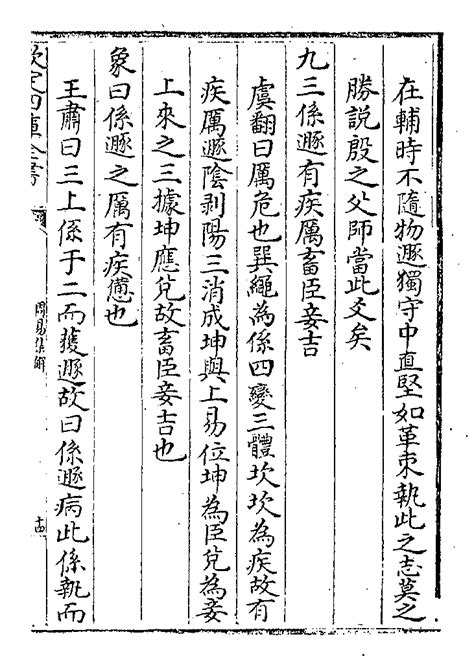 在輔時不隨物遯獨守中直堅如革束執此之志莫之
勝說殷之父師當此爻矣
九三係遯有疾厲畜臣妾吉
虞翻曰厲危也巽繩為係四變三體坎坎為疾故有
疾厲遯陰剥陽三消成坤與上易位坤為臣兌為妾
上來之三據坤應兌故畜臣妾吉也
象曰係遯之厲有疾憊也
王肅曰三上係于二而獲遯故曰係遯病此係執而
欽定四庫全書
周易集解